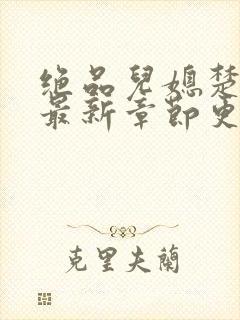 绝品兒媳楚
最新章節更
克里夫蘭